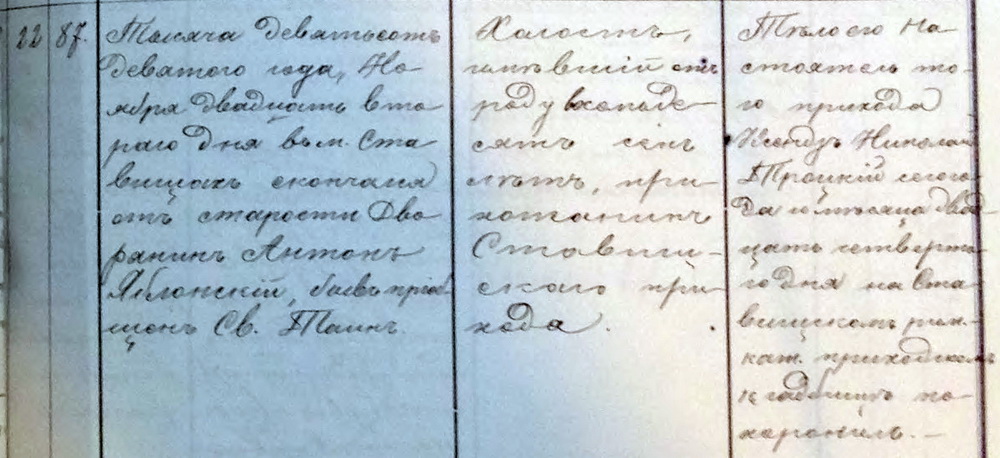 22
87.
Тысяча девятьсотъ
девятого года, Но-
ября двадцать вто-
рого дня въ м. Ста-
вищахъ скончался
отъ старости дво-
рянинъ Антонъ
Яблонскій, бывъ пріоб-
щенъ Св. Таинъ.
Холостъ,
имѣвшій отъ
роду восемьде-
сятъ семь
лѣтъ, при-
хожанинъ
Ставищ-
скаго при-
хода.
Тѣло его на-
стоятель то-
го прихода
Ксендзъ Николай
Троцкій сего го-
да и мѣсяца двад-
цать четверта-
го дня на Ста-
вищскомъ рим.-
кат. приходскомъ
кладбищѣ по-
хоронилъ. —